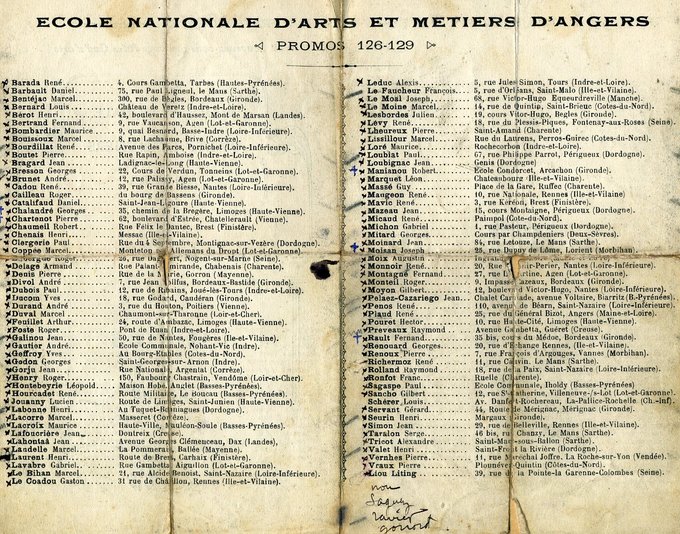 ECOLE NATIONALE D'ARTS ET METIERS D'ANGERS
PROMOS 126-129
Barada René 4, Cours Gambetta, Tarbes (Hautes-Pyrénées).
Barbault Daniel 75, rue Paul Ligneul, le Mans (Sarthe).
Bentéjan Marcel 300, rue de Bègles, Bordeaux (Gironde).
Bernard Louis Château de Veretz (Indre-et-Loire).
Bérot Henri 42, boulevard d'Haussez, Mont de Marsan (Landes).
Bertrand Fernand 9, rue Vaucanson, Agen (Lot-et-Garonne).
Bombardier Maurice 9, quai Besnard, Basse-Indre (Loire-Inférieure).
Bouissoux Marcel 8, rue Lachaume, Brive (Corrèze).
Bourdillat René Avenue des Parcs, Pornichet (Loire-Inférieure).
Boutet Pierre Rue Rapin, Amboise (Indre-et-Loire).
Bragard Jean Ladignac-le-Long (Haute-Vienne).
Bresson Georges 22, Cours de Verdun, Tonneins (Lot-et-Garonne).
Brunet André 12, rue Palissy, Agen (Lot-et-Garonne).
Cadon René 39, rue Grande Biesse, Nantes (Loire-Inférieure).
Cailleau Roger du bourg de Bassens (Gironde).
Catalifaud Daniel Saint-Jean-Ligoure (Haute-Vienne).
Chalandré Georges 35, chemin de la Brégère, Limoges (Haute-Vienne).
Chartenot Pierre 62, boulevard d'Estrée, Chatellerault (Vienne).
Chaumeil Robert Rue Félix le Dantec, Brest (Finistère).
Chenais Henri Messac (Ille-et-Vilaine).
Clergerie Paul Rue du 4 Septembre, Montignac-sur-Vezère (Dordogne)
Coppée Marcel Monteton par Allemans du Dropt (Lot-et-Garonne)
Nogent-sur-Marne (Seine).
Delage Armand Rue Paix Limirande, Chabenais (Charente).
Denis Pierre Rue de la Mairie, Gorron (Mayenne).
Divol André 7, rue Jean Jollifus, Bordeaux-Bastide (Gironde).
Dubois Paul 12, rue de Ribains, Joué-lès-Tours (Indre-et-Loire).
Ducom Yves 18, rue Godard, Caudéran (Gironde).
Durand André 3, rue du Houton, Poitiers (Vienne).
Duval Marcel Chaumont-sur-Tharonne (Loir-et-Cher).
Feuillet Arthur 24, route d'Ambazac, Limoges (Haute-Vienne).
Foste Roger Pont de Ruan (Indre-et-Loire).
Galineu Jean 50, rue de Nantes, Fougères (Ille-et-Vilaine).
Gautier André Ecole Communale, Nohant-Vic (Indre).
Geffroy Yves Au Bourg-Euables (Cotes-du-Nord).
Gedon Georges Saint-Georges-sur-Arnon (Indre).
Gorju Jean Rue Nationale, Argentat (Corrèze).
Henry Roger 150, Faubourg Chastrain, Vendôme (Loir-et-Cher).
Hontebeyrie Léopold Maison Hobé, Anglet (Basses-Pyrénées).
Hourcadet René Route Militaire, Le Boucau (Basses-Pyrénées).
Jouanny Lucien Route de Limoges, Saint-Junien (Haute-Vienne).
Labonne Henri Au Tuquet-Bonnaguus (Dordogne).
Lacorre Marcel Masseret (Corrèze)
Lacroix Maurice Haute-Ville, Mauléon-Soule (Basses-Pyrénées).
Lafourcière Jean Dontreix (Creuse).
Lahontaà Jean Avenue Georges Clémenceau, Dax (Landes),
Landelle Marcel La Pommeraie, Ballée (Mayenne).
Laurent Henri Route de Brest, Carhaix (Finistère).
Lavabre Gabriel Rue Gambetta, Aiguillon (Lot-et-Garonne).
Le Bihan Marcel 21, rue Alcide Benoist, Saint-Nazaire (Loire-Inférieure).
Le Coadou Gaston 31 rue de Châtillon, Rennes (Ille-et-Vilaine).
Leduc Alexis 5, rue Jules Simon, Tours (Indre-et-Loire).
Le Faucheur François 5, rue d'Orléans, Saint-Malo (Ille-et-Vilaine).
Le Moal Joseph 68, rue Victor-Hugo Equeurdreville (Manche).
Le Moine Marcel 14, rue de Quintin, Saint-Brieuc (Cotes-du-Nord).
Lesbordes Julien 19, cours Vitor-Hugo, Bègles (Gironde).
Lévy René 18, rue du Plessis-Piques, Fontenay-aux-Roses (Seine).
Lheureux Pierre Saint-Amand (Charente)
Lissillour Marcel Rue du Laurens, Perros-Guirec (Cotes-du-Nord).
Loré Maurice Rochecorbon (Indre-et-Loire).
Loubiat Paul 67, rue Philippe Parrot, Périgueux (Dordogne)
Loubignac Jean Genis (Dordogne)
Mamianou Robert Ecole Condorcet, Arcachon (Gironde).
Marquet Léon Chateaubourg (Ille-et-Vilaine).
Massé Guy Place de la Gare, Ruffec (Charente).
Maugeon René 10, rue Nationale, Rennes (Ille-et-Vilaine)
Mavic René 3, rue Kéréon, Brest (Finistère).
Mazeau Jean 15, cours Montaigne, Périgueux (Dordogne),
Micaud René Paimpol (Cote-du-Nord).
Michon Gabriel 1, rue Pasteur, Périgueux (Dordogne).
Mitard Georges Cours par Champdeniers (Deux-Sèvres).
Moinard Jean 84, rue Letouze, Le Mans (Sarthe).
Moisan Joseph 25, rue Dupuy de Lôme, Lorient (Morbihan)
Moix Augustin
Monnoir René 20, rue Casimir-Perier, Nantes (Loire-Inférieure)
Montagne Fernand 27, rue Martine, Agen (Lot-et-Garonne).
Monteil Roger 9, Impasse Cazeaux, Bordeaux (Gironde).
Moyon Gilbert boulevard Victor-Hugo, Nantes (Loire-Inférieure).
Pelaez-Cazariego Jean Chalet Cascade, avenue Voltaire, Biarritz (B-Pyrénées)
Penos René 110, avenue de Béarn, Saint-Nazaire (Loire-Inférieure).
Piaud René 25, rue du Général Bizot, Angers (Maine-et-Loire).
Pouret Hector 10, rue Haute-Cité, Limoges (Haute-Vienne)
Preveaux Raymond Avenue Gambetta, Guéret (Creuse).
Rault Fernand 35 bis, cours du Médoc, Bordeaux (Gironde).
Renouard Georges 20, rue d'Echange Rennes, (Ille-et-Vilaine).
Renoux Pierre 7, rue François d'Argouges, Vannes (Morbihan).
Richermoz René 11, rue Cauvin, Le Mans (Sarthe).
Rolland Raymond 18, rue de la Paix, Saint-Nazaire (Loire-Inférieure).
Ronfet Franc Ruelle (Charente).
Sagaspe Paul Ecole Communale, Iholdy (Basses-Pyrénées).
Sancho Gilbert 12, rue Ste-Catherine, Villeneuve-s/Lot (Lot-et-Garonne).
Schérer Louis Av. Danfert-Rochereau, La-Pallice-Rochelle (Ch.-Inf).
Servant Gérard 44, Route de Mérignac, Mérignac (Gironde).
Seurin Henri Margaux (Gironde).
Simon Jean 29, rue de Belleville, Rennes (Ille-et-Vilaine).
Taralon Serge 46 bis, rue Chanzy, Le Mans (Sarthe).
Tricot Alexandre Saint-Mars-sous-Ballon (Sarthe).
Valet Henri Saint-Front la Rivière (Dordogne).
Vernhes Pierre 11, rue Maréchal Joffre, La Roche-sur-Yon (Vendée).
Vraux Pierre Plounévez-Quintin (Côtes-du-Nord).
Liou Liting 39, rue de la Pointe la Garenne-Colombes (Seine).
non